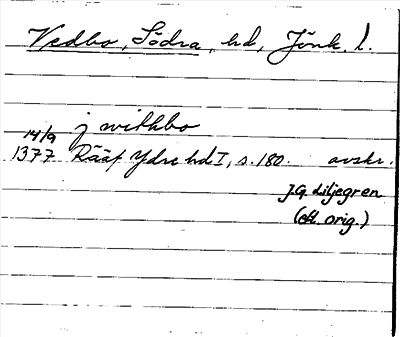 Vedbo, Södra, hd, Jönk. l.
j withbo
14/9
1377 Rääf Ydre hd I, s. 180. avskr.
J.G. Liljegren
(efl. orig.)